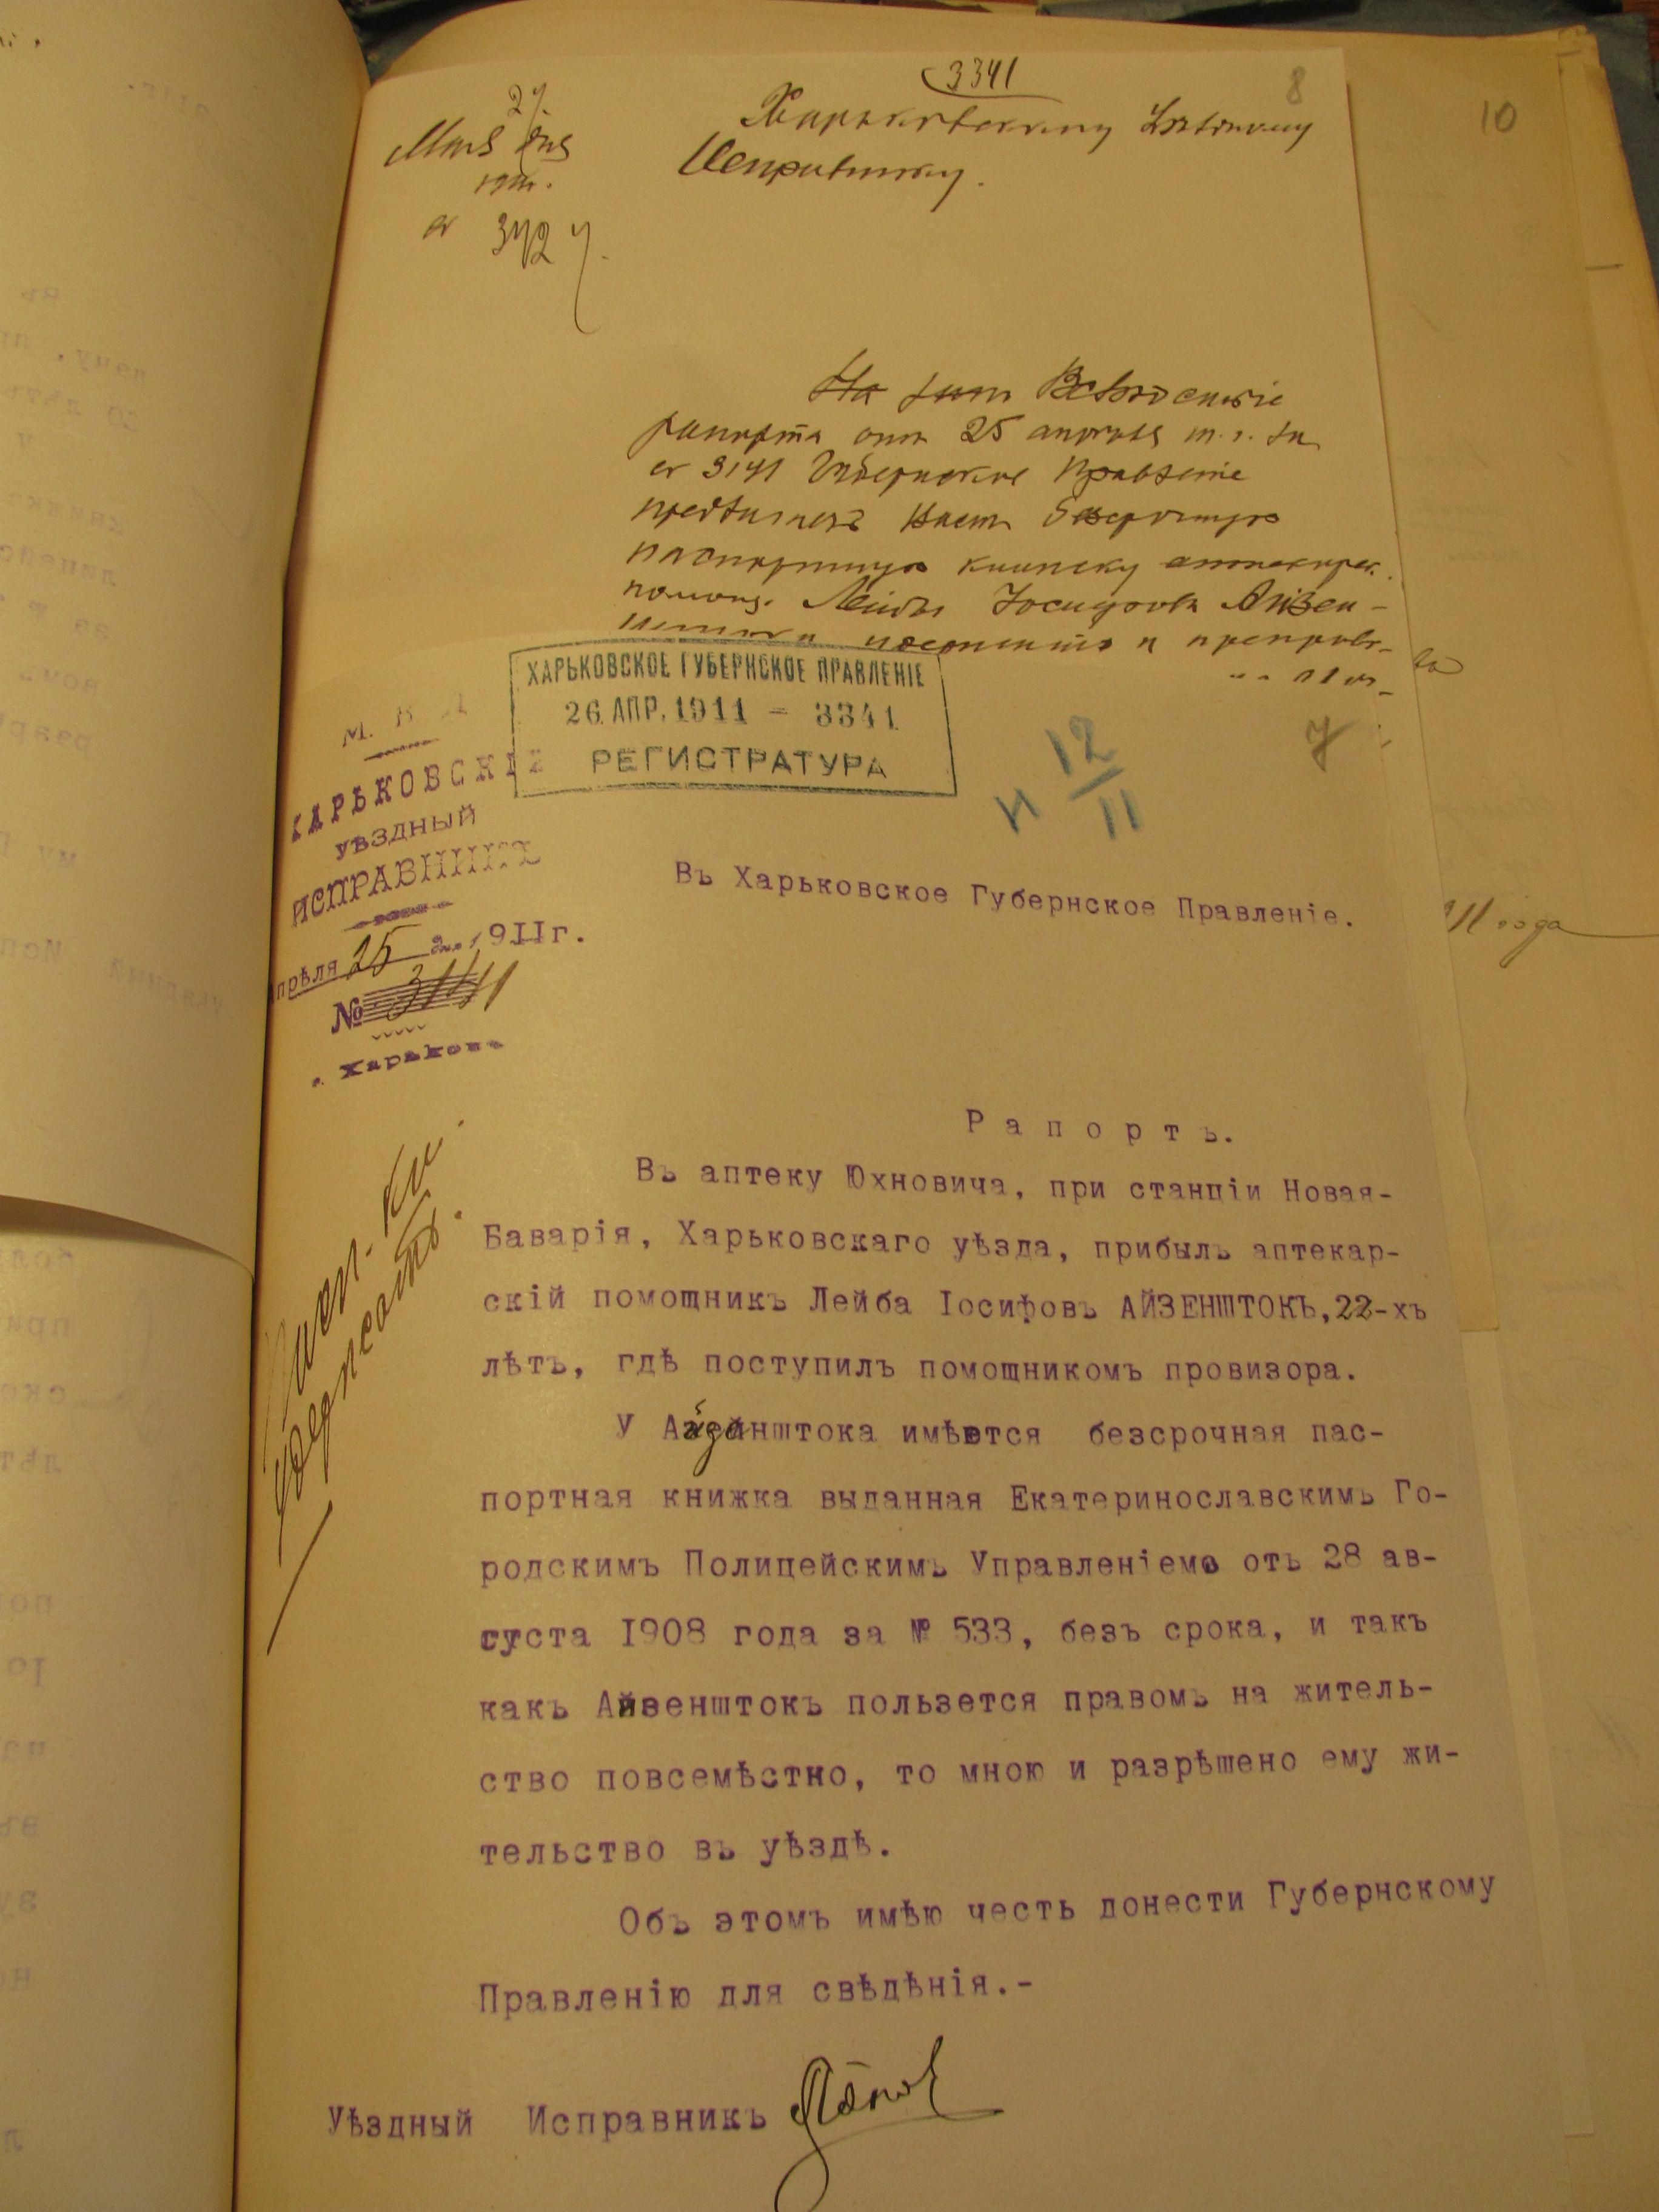 3341
8
10
27
Мая дня
1911 г.
№ 3427.
Харьковскому Уѣздному
Исправнику.
Вслѣдствіе
рапорта отъ 25 апрѣля т. г. за
№ 3141 Губернское Правленіе
безсрочную
паспортную книжку аптекарск.
помощ. Лейбы Іосифова Айзен-
штока
ХАРЬКОВСКОЕ ГУБЕРНСКОЕ ПРАВЛЕНІЕ
26. АПР. 1911 - 3341
РЕГИСТРАТУРА
12
11
7
М. В. Д.
ХАРЬКОВСКІЙ
УѢЗДНЫЙ
ИСПРАВНИКЪ
Апрѣля 25 дня 1911 г.
№ 3141
г. Харьковъ
11 года
Въ Харьковское Губернское Правленіе.
Рапортъ.
Въ аптеку Юхновича, при станціи Новая-
Баварія, Харьковскаго уѣзда, прибылъ аптекар-
скій помощникъ Лейба Іосифовъ АЙЗЕНШТОКЪ, 22-хъ
лѣтъ, гдѣ поступилъ помощникомъ провизора.
У Айзенштока имѣется безсрочная пас-
портная книжка выданная Екатеринославскимъ Го-
родскимъ Полицейскимъ Управленіемъ отъ 28 ав-
густа 1908 года за № 533, безъ срока, и такъ
какъ Айзенштокъ пользется правомъ на житель-
ство повсемѣстно, то мною и разрѣшено ему жи-
тельство въ уѣздѣ.
Объ этомъ имѣю честь донести Губернскому
Правленію для свѣдѣнія.-
Уѣздный Исправникъ